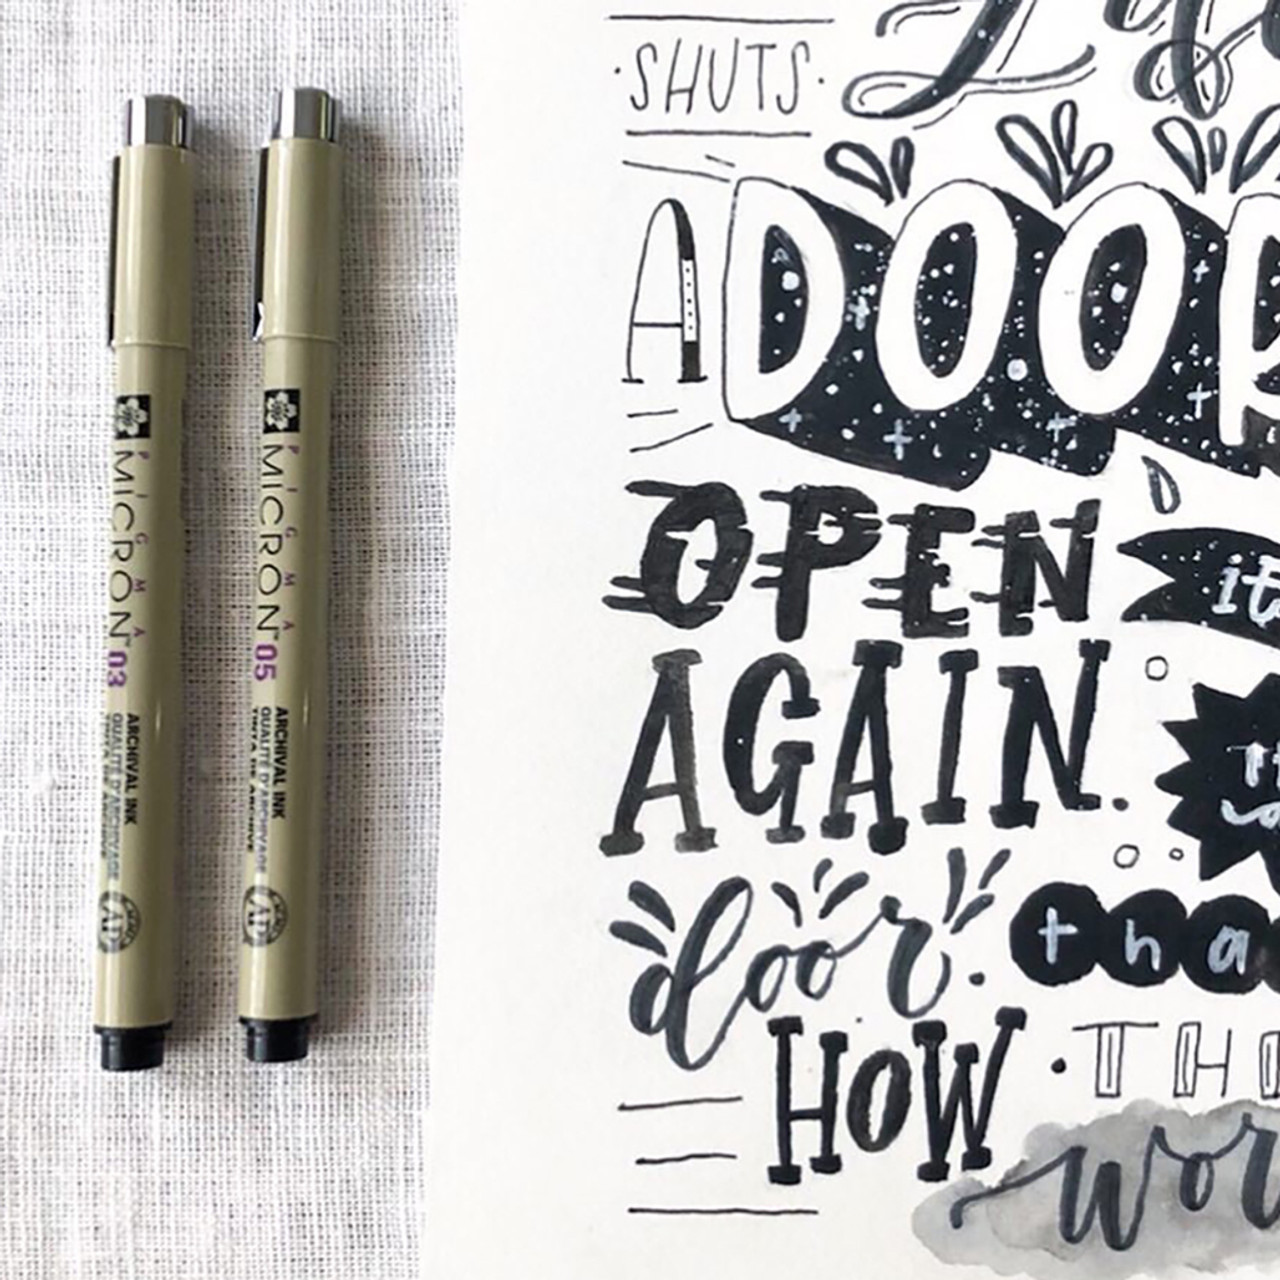 PIGMA
MICRON™ 03
ARCHIVAL INK
QUALITÉ D'ARCHIVAGE
PIGMA
MICRON™ 05
ARCHIVAL INK
QUALITÉ D'ARCHIVAGE
TINTA DE ARCHIVO
AP
AP
·SHUTS·
A DOOR
OPEN it
AGAIN.
door. tha
HOW · TH
wor